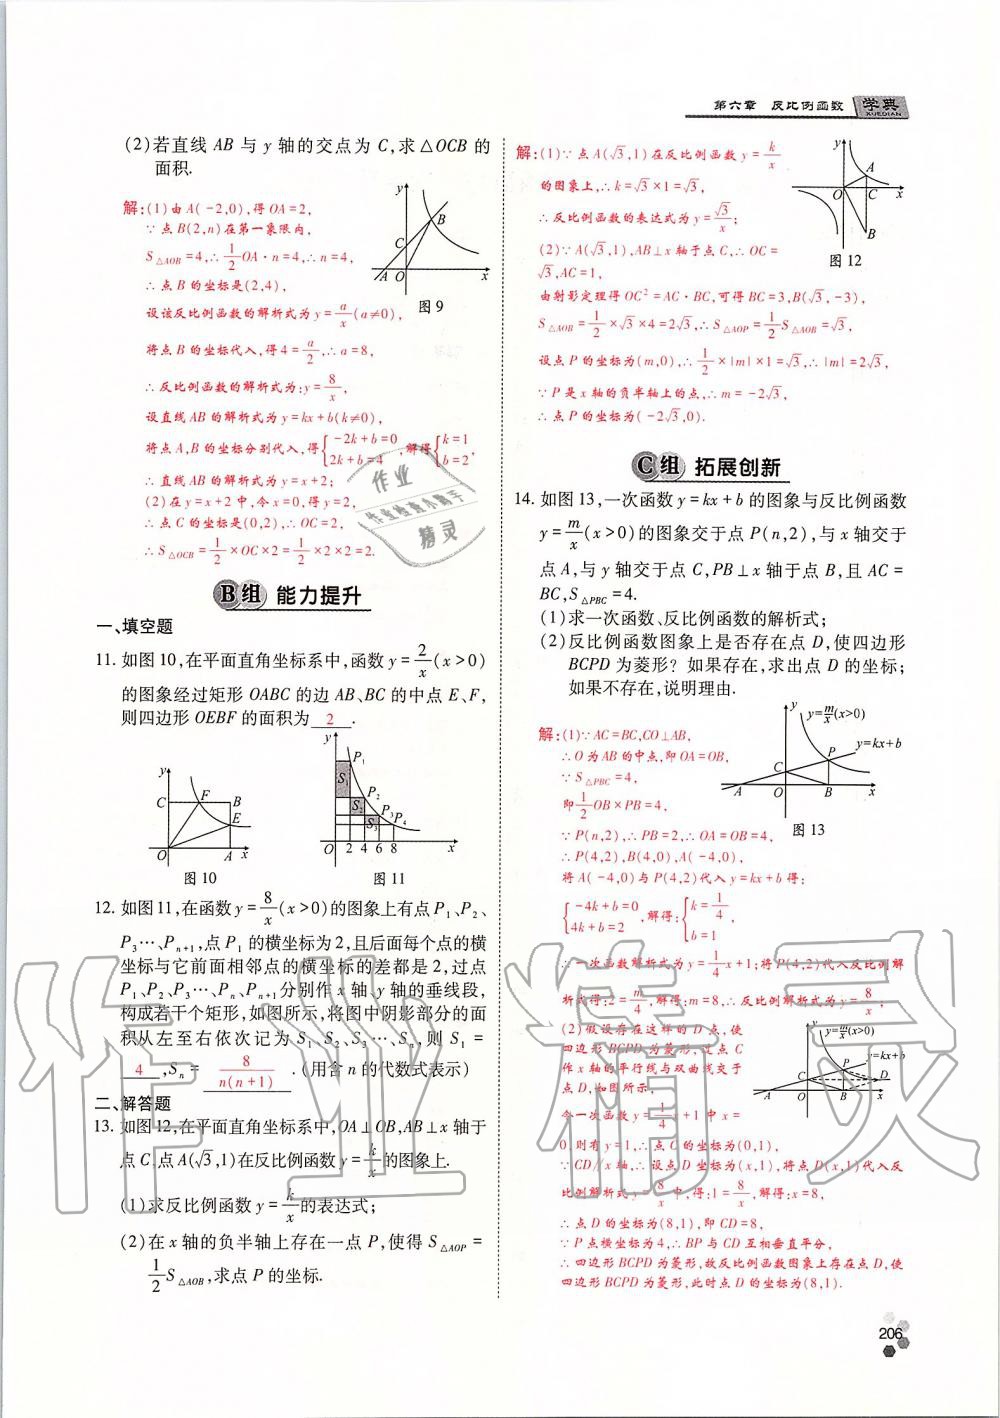 第六章 反比例函数 学典
XUEDIAN
(2)若直线 AB 与 y 轴的交点为 C,求△OCB 的
面积.
解:(1)由 A(-2,0),得 OA=2,
∵点 B(2,n)在第一象限内,
S△AOB=4,∴1/2 OA·n=4,∴n=4,
∴点 B 的坐标是(2,4),
设该反比例函数的解析式为 y=a/x(a≠0),
将点 B 的坐标代入,得 4=a/2,∴a=8,
∴反比例函数的解析式为:y=8/x,
设直线 AB 的解析式为 y=kx+b(k≠0),
将点 A,B 的坐标分别代入,得{-2k+b=0 2k+b=4,解得{k=1 b=2,
∴直线 AB 的解析式为 y=x+2;
(2)在 y=x+2 中,令 x=0,得 y=2,
∴点 C 的坐标是(0,2),∴OC=2,
∴S△OCB=1/2×OC×2=1/2×2×2=2.
y
B
C
A O x
图 9
B组 能力提升
一、填空题
11. 如图 10,在平面直角坐标系中,函数 y=2/x(x>0)
的图象经过矩形 OABC 的边 AB、BC 的中点 E、F,
则四边形 OEBF 的面积为 2 .
y
C F B
E
O A x
图 10
y
P1
S1
P2
S2
P3 P4
S3
O 2 4 6 8 x
图 11
12. 如图11,在函数 y=8/x(x>0)的图象上有点 P1、P2、
P3…、Pn+1,点 P1 的横坐标为2,且后面每个点的横
坐标与它前面相邻点的横坐标的差都是 2,过点
P1、P2、P3…、Pn、Pn+1分别作 x 轴、y 轴的垂线段,
构成若干个矩形,如图所示,将图中阴影部分的面
积从左至右依次记为 S1、S2、S3…、Sn,则 S1=
4 ,Sn= 8/n(n+1) .(用含 n 的代数式表示)
二、解答题
13. 如图12,在平面直角坐标系中,OA⊥OB,AB⊥x 轴于
点 C,点 A(√3,1)在反比例函数 y=k/x 的图象上.
(1)求反比例函数 y=k/x 的表达式;
(2)在 x 轴的负半轴上存在一点 P,使得 S△AOP=
1/2 S△AOB,求点 P 的坐标.
解:(1)∵点 A(√3,1)在反比例函数 y=k/x
的图象上,∴k=√3×1=√3,
∴反比例函数的表达式为 y=√3/x;
(2)∵A(√3,1),AB⊥x 轴于点 C,∴OC=
√3,AC=1,
由射影定理得 OC²=AC·BC,可得 BC=3,B(√3,-3),
S△AOB=1/2×√3×4=2√3,∴S△AOP=1/2 S△AOB=√3,
设点 P 的坐标为(m,0),∴1/2×|m|×1=√3,∴|m|=2√3,
∵P 是 x 轴的负半轴上的点,∴m=-2√3,
∴点 P 的坐标为(-2√3,0).
y
A
O C x
B
图 12
C组 拓展创新
14. 如图 13,一次函数 y=kx+b 的图象与反比例函数
y=m/x(x>0)的图象交于点 P(n,2),与 x 轴交于
点 A,与 y 轴交于点 C,PB⊥x 轴于点 B,且 AC=
BC,S△PBC=4.
(1)求一次函数、反比例函数的解析式;
(2)反比例函数图象上是否存在点 D,使四边形
BCPD 为菱形?如果存在,求出点 D 的坐标;
如果不存在,说明理由.
解:(1)∵AC=BC,CO⊥AB,
∴O 为 AB 的中点,即 OA=OB,
∵S△PBC=4,
即1/2 OB×PB=4,
∵P(n,2),∴PB=2,∴OA=OB=4,
∴P(4,2),B(4,0),A(-4,0),
将 A(-4,0)与 P(4,2)代入 y=kx+b 得:
{-4k+b=0 4k+b=2,解得:{k=1/4, b=1
∴一次函数解析式为 y=1/4 x+1;将 P(4,2)代入反比例解
析式得:2=m/4,解得:m=8,∴反比例解析式为 y=8/x,
(2)假设存在这样的 D 点,使
四边形 BCPD 为菱形,过点 C
作 x 轴的平行线与双曲线交于
点 D,如图所示,
令一次函数 y=1/4 x+1 中 x=
0,则有 y=1,∴点 C 的坐标为(0,1),
∵CD∥x 轴,∴设点 D 坐标为(x,1),将点 D(x,1)代入反
比例解析式 y=8/x 中,得:1=8/x,解得:x=8,
∴点 D 的坐标为(8,1),即 CD=8,
∵P 点横坐标为 4,∴BP 与 CD 互相垂直平分,
∴四边形 BCPD 为菱形,故反比例函数图象上存在点 D,使
四边形 BCPD 为菱形,此时点 D 的坐标为(8,1).
y
y=m/x(x>0)
y=kx+b
P
C
A O B x
图 13
y
y=m/x(x>0)
y=kx+b
P
C D
A O B x
206
作业
作业检查小助手
精灵
作业精灵